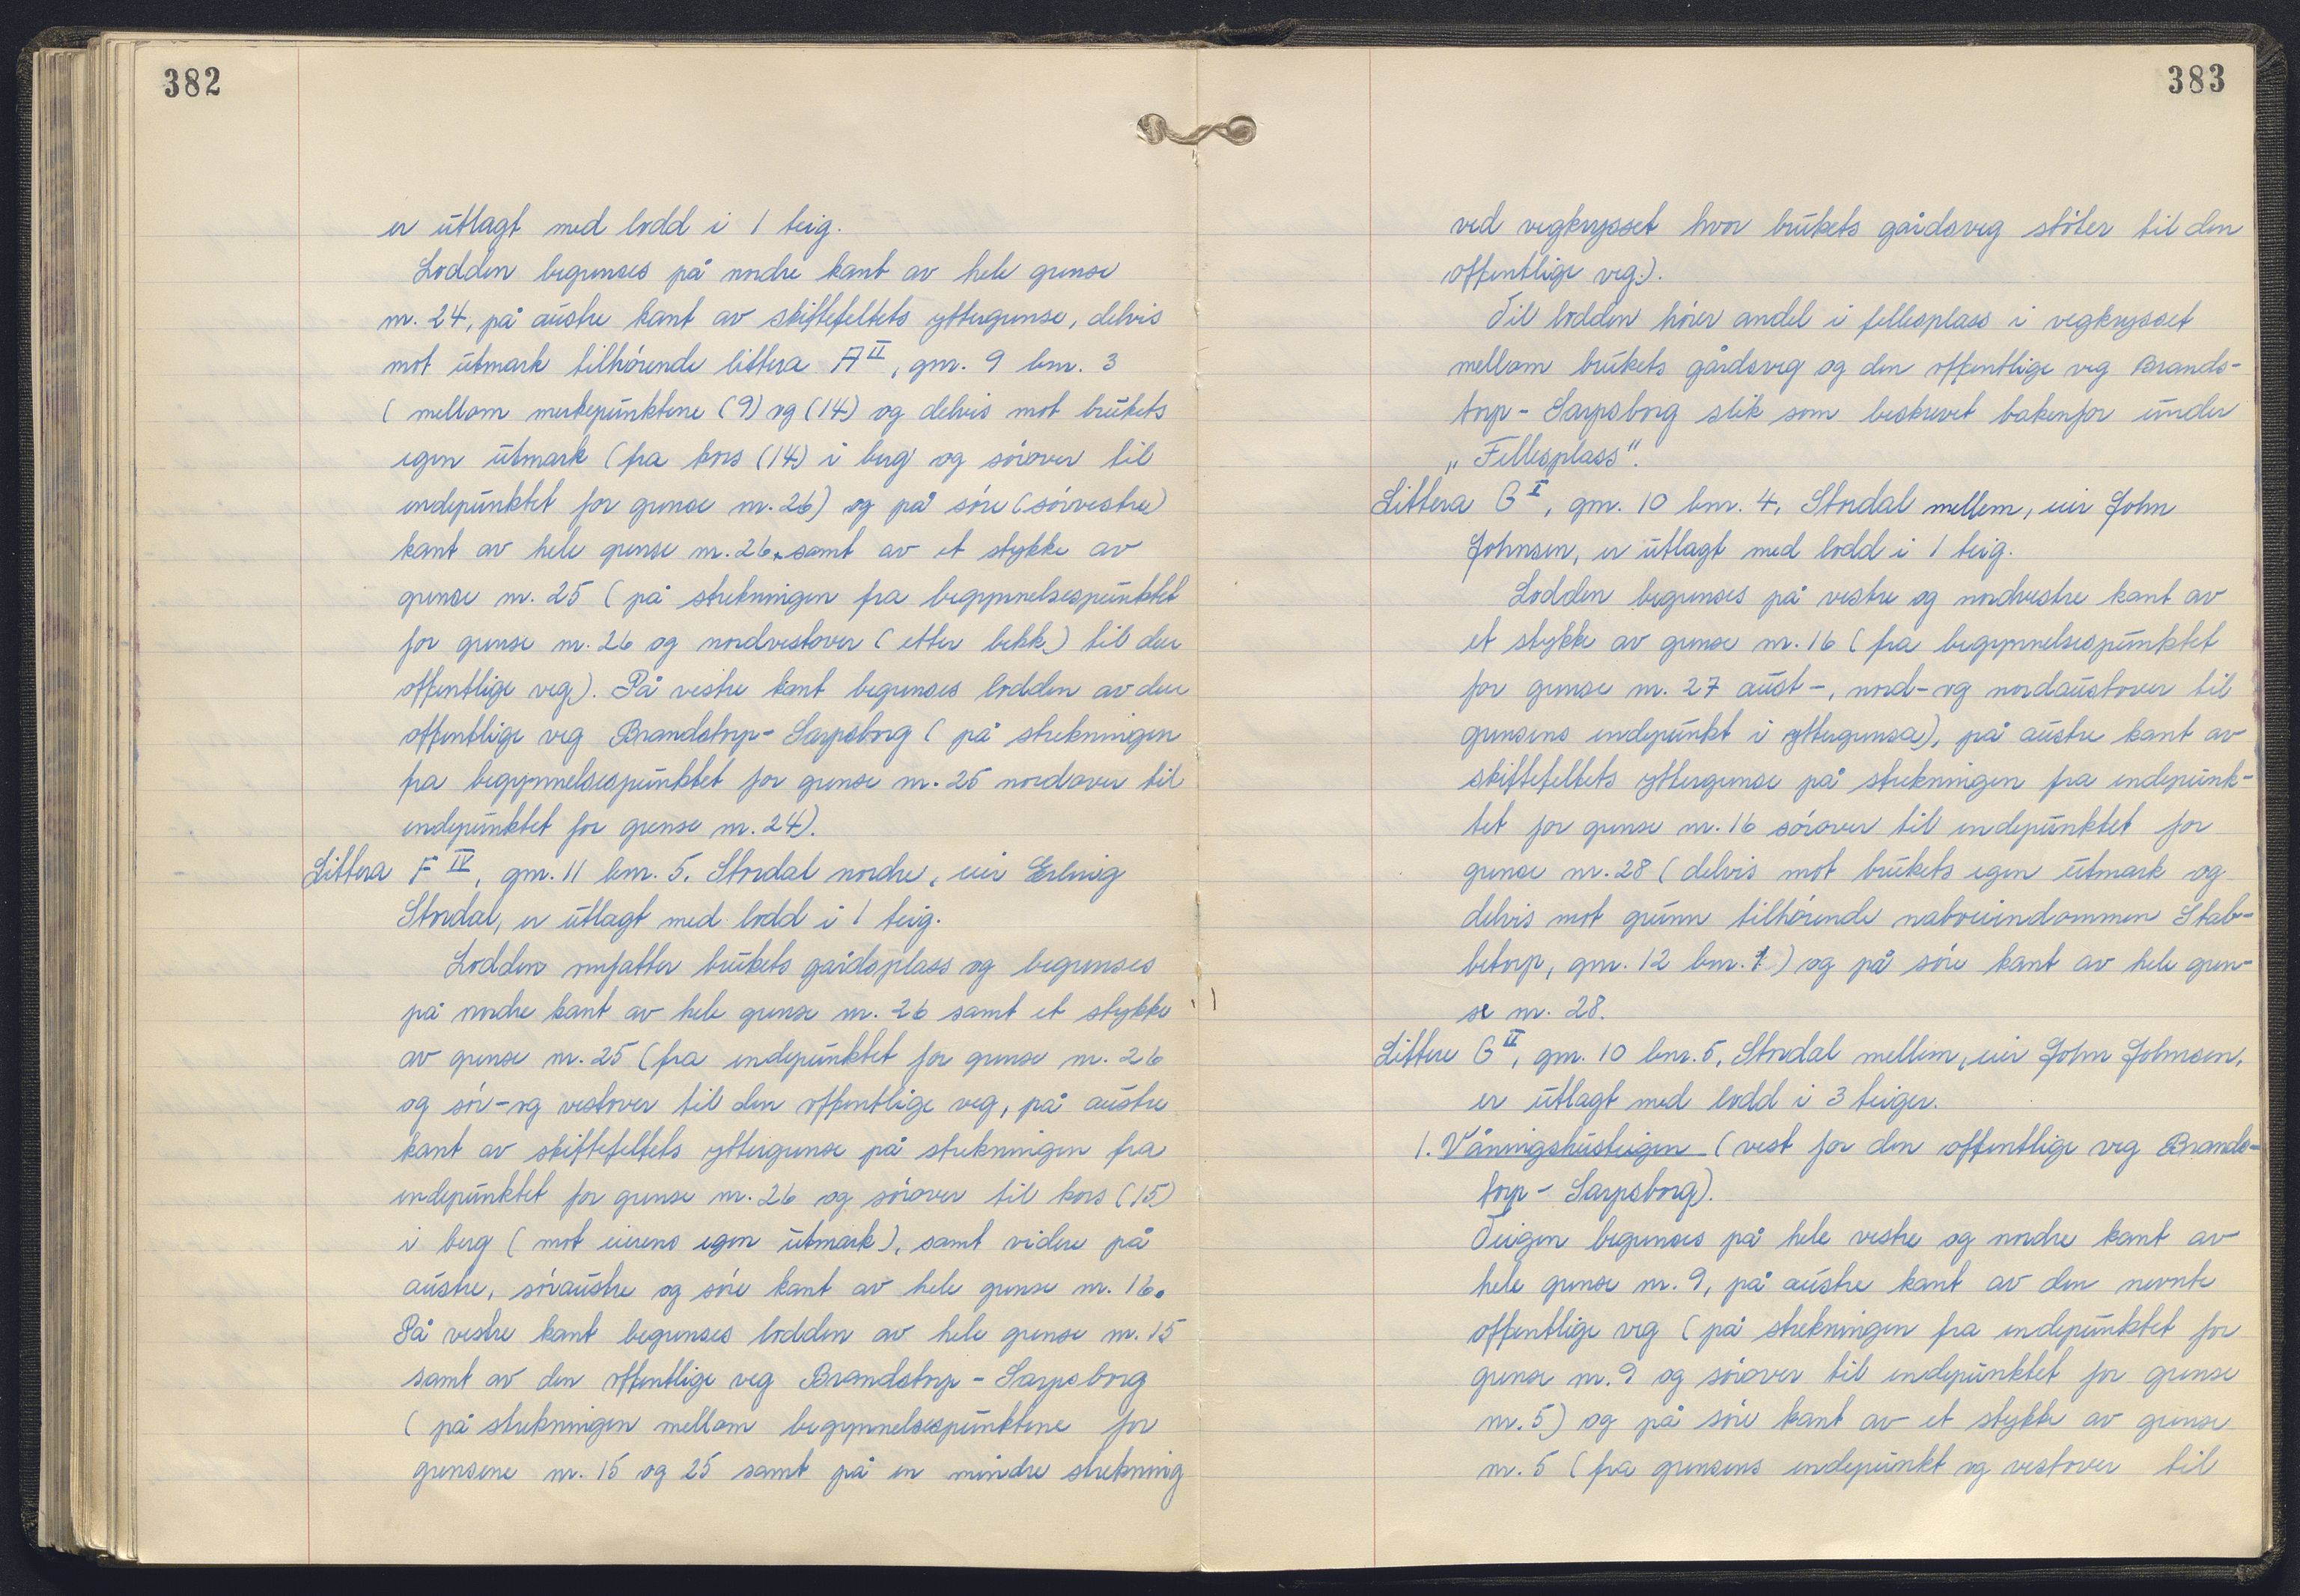 382
er utlagt med lodd i 1 teig.
Lodden begrenses på nordre kant av hele grense
nr. 24, på austre kant av skiftefeltets yttergrense, delvis
mot utmark tilhørende littera A II, gnr. 9 bnr. 3
( mellom merkepunktene (9) og (14) og delvis mot brukets
egen utmark (fra kors (14) i berg og sørover til
endepunktet for grense nr. 26) og på søre (sørvestre)
kant av hele grense nr. 26, samt av et stykke av
grense nr. 25 ( på strekningen fra begynnelsespunktet
for grense nr. 26 og nordvestover ( etter bekk) til den
offentlige veg). På vestre kant begrenses lodden av den
offentlige veg Brandstorp - Sarpsborg ( på strekningen
fra begynnelsespunktet for grense nr. 25 nordover til
endepunktet for grense nr. 24).
Littera F IV, gnr. 11 bnr. 5. Stordal nordre, eier Erling
Stordal, er utlagt med lodd i 1 teig.
Lodden omfatter brukets gårdsplass og begrenses
på nordre kant av hele grense nr. 26 samt et stykke
av grense nr. 25 (fra endepunktet for grense nr. 26
og sør- og vestover til den offentlige veg, på austre
kant av skiftefeltets yttergrense på strekningen fra
endepunktet for grense nr. 26 og sørover til kors (15)
i berg ( mot eierens egen utmark), samt videre på
austre, søraustre og søre kant av hele grense nr. 16.
På vestre kant begrenses lodden av hele grense nr. 15
samt av den offentlige veg Brandstorp - Sarpsborg
( på strekningen mellom begynnelsespunktene for
grensene nr. 15 og 25 samt på en mindre strekning
383
ved vegkrysset hvor brukets gårdsveg støter til den
offentlige veg.).
Til lodden hører andel i fellesplass i vegkrysset
mellom brukets gårdsveg og den offentlige veg Brands-
torp - Sarpsborg slik som beskrevet bakenfor under
„ Fellesplass".
Littera G I, gnr. 10 bnr. 4, Stordal mellem, eier John
Johnsen, er utlagt med lodd i 1 teig.
Lodden begrenses på vestre og nordvestre kant av
et stykke av grense nr. 16 ( fra begynnelsespunktet
for grense nr. 27 aust-, nord- og nordaustover til
grensens endepunkt i yttergrensa), på austre kant av
skiftefeltets yttergrense på strekningen fra endepunk-
tet for grense nr. 16 sørover til endepunktet for
grense nr. 28 ( delvis mot brukets egen utmark og
delvis mot grunn tilhørende naboeiendommen Stab-
betorp, gnr. 12 bnr. 1 ) og på søre kant av hele gren-
se nr. 28.
Littera G II, gnr. 10 bnr. 5, Stordal mellem, eier John Johnsen,
er utlagt med lodd i 3 teiger.
1. Våningshusteigen ( vest for den offentlige veg Brands-
torp - Sarpsborg).
Teigen begrenses på hele vestre og nordre kant av
hele grense nr. 9, på austre kant av den nevnte
offentlige veg ( på strekningen fra endepunktet for
grense nr. 9 og sørover til endepunktet for grense
nr. 5) og på søre kant av et stykke av grense
nr. 5 ( fra grensens endepunkt og vestover til